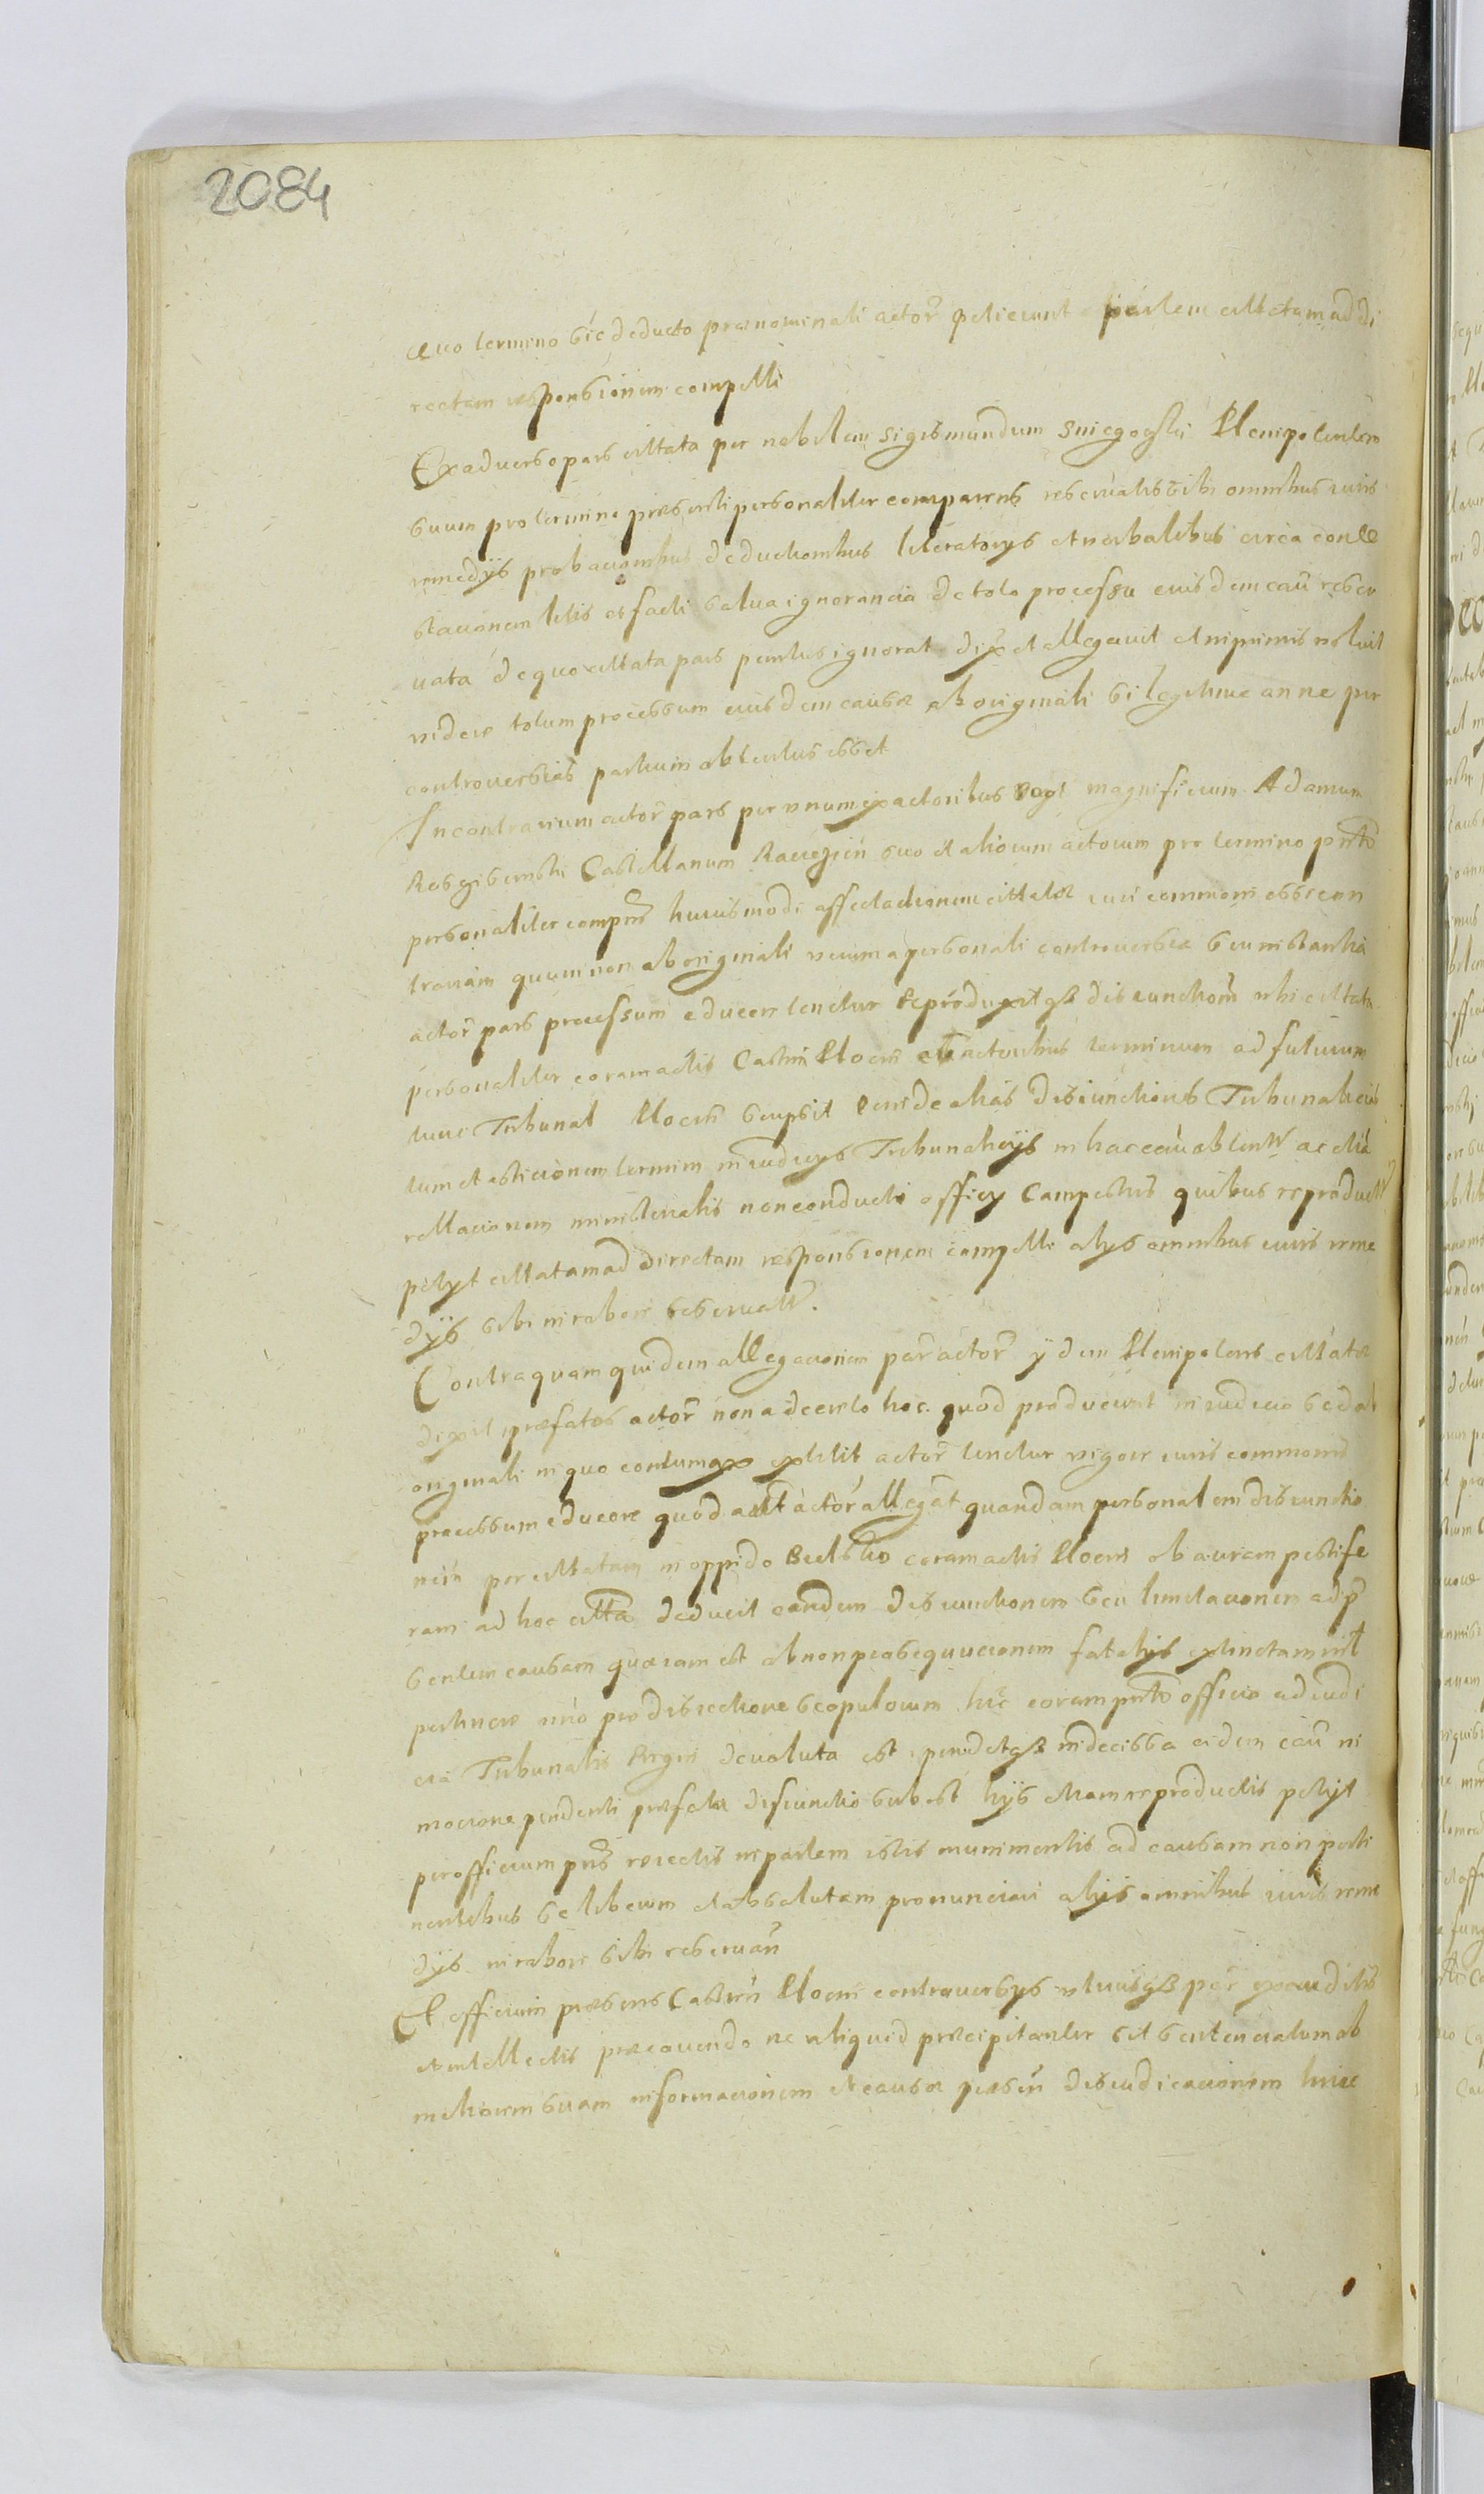 2084
Quo termino sic deducto prænominati actor petierunt partem citatam ad di
rectam responsionem compelli
Ex adverso pars citata per nobilem Sigismundum Sniegoczki Plenipotentem
suum pro termino præsenti personaliter comparens reservatis sibi omnibus iuris
remedÿs probacionibus deductionibus literatorÿs et verbalibus circa conte
stacionem litis et facti salva ignorancia de toto processu eiusdem cau reser
vata de quo citata pars penitus ignorat dix et allegavit et inprimis voluit
videre totum processum eiusdem causæ ab originali si legitime an ne per
controversias partium obtentus esset
In contrarium actor pars per unum ex actoribus magnificum Adamum
Castellanum suo et aliorum actorum pro termino pnto
personaliter compns huiusmodi affectacionem citatæ iuri communi esse con
trariam quum non ab originali verum a personali controversia seu instantia
actor pars processum educere tenetur Reproduxitqz disiunctiom ubi citata
personaliter coram actis Castri Plocen actoribus terminum ad futurum
tunc Tribunal Plocen suscepit disiunctionis Tribunalicias
tum et termini in iudicÿs Tribunalicÿs in hac cau obtent ac
rellacionem ministerialis non conducti officÿ Campestris quibus reproductis
petÿt citatam ad directam responsionem compelli alÿs omnibus iuris reme
dÿs sibi in robore reservatis.
Contra quam quidem allegacionem par actor ÿdem Plenipotens citatæ
dixit præfatos actor non adeerilo hoc quod producunt in iudicio sed ab
originali in quo contumax extitit actor tenetur vigore iuris communis
processum educere quod actor allegat quandam personalem disiunctio
nem per citatam in oppido Bielsko coram actis Plocen ob auram pestife
ram ad hoc citta deducit eandem disiunctionem seu limitacionem ad p
sentem causam quæ iam est ob non prosequucionem fatalÿs extinctam nil
pertinere imo pro disiectione scopulorum hic coram pnto officio ad iudi
cia Tribunalis Regni devoluta est pendetqz indecissa eidem cau in
mocione pendenti præfata disiunctio subest hÿs etiam reproductis petÿt
per officium pns reiectis in partem istis munimentis ad causam non perti
nentibus se liberum et absolutam pronunciari alÿs omnibus iuris reme
dÿs in robore sibi reservan
Et officium præsens Castren Plocen controversÿs utriusqz par exauditis
et intellectis præcavendo ne aliquid præcipitanter sit sentenciatum ob
meliorem suam informacionem et causæ præsen disiudicacionem hinc